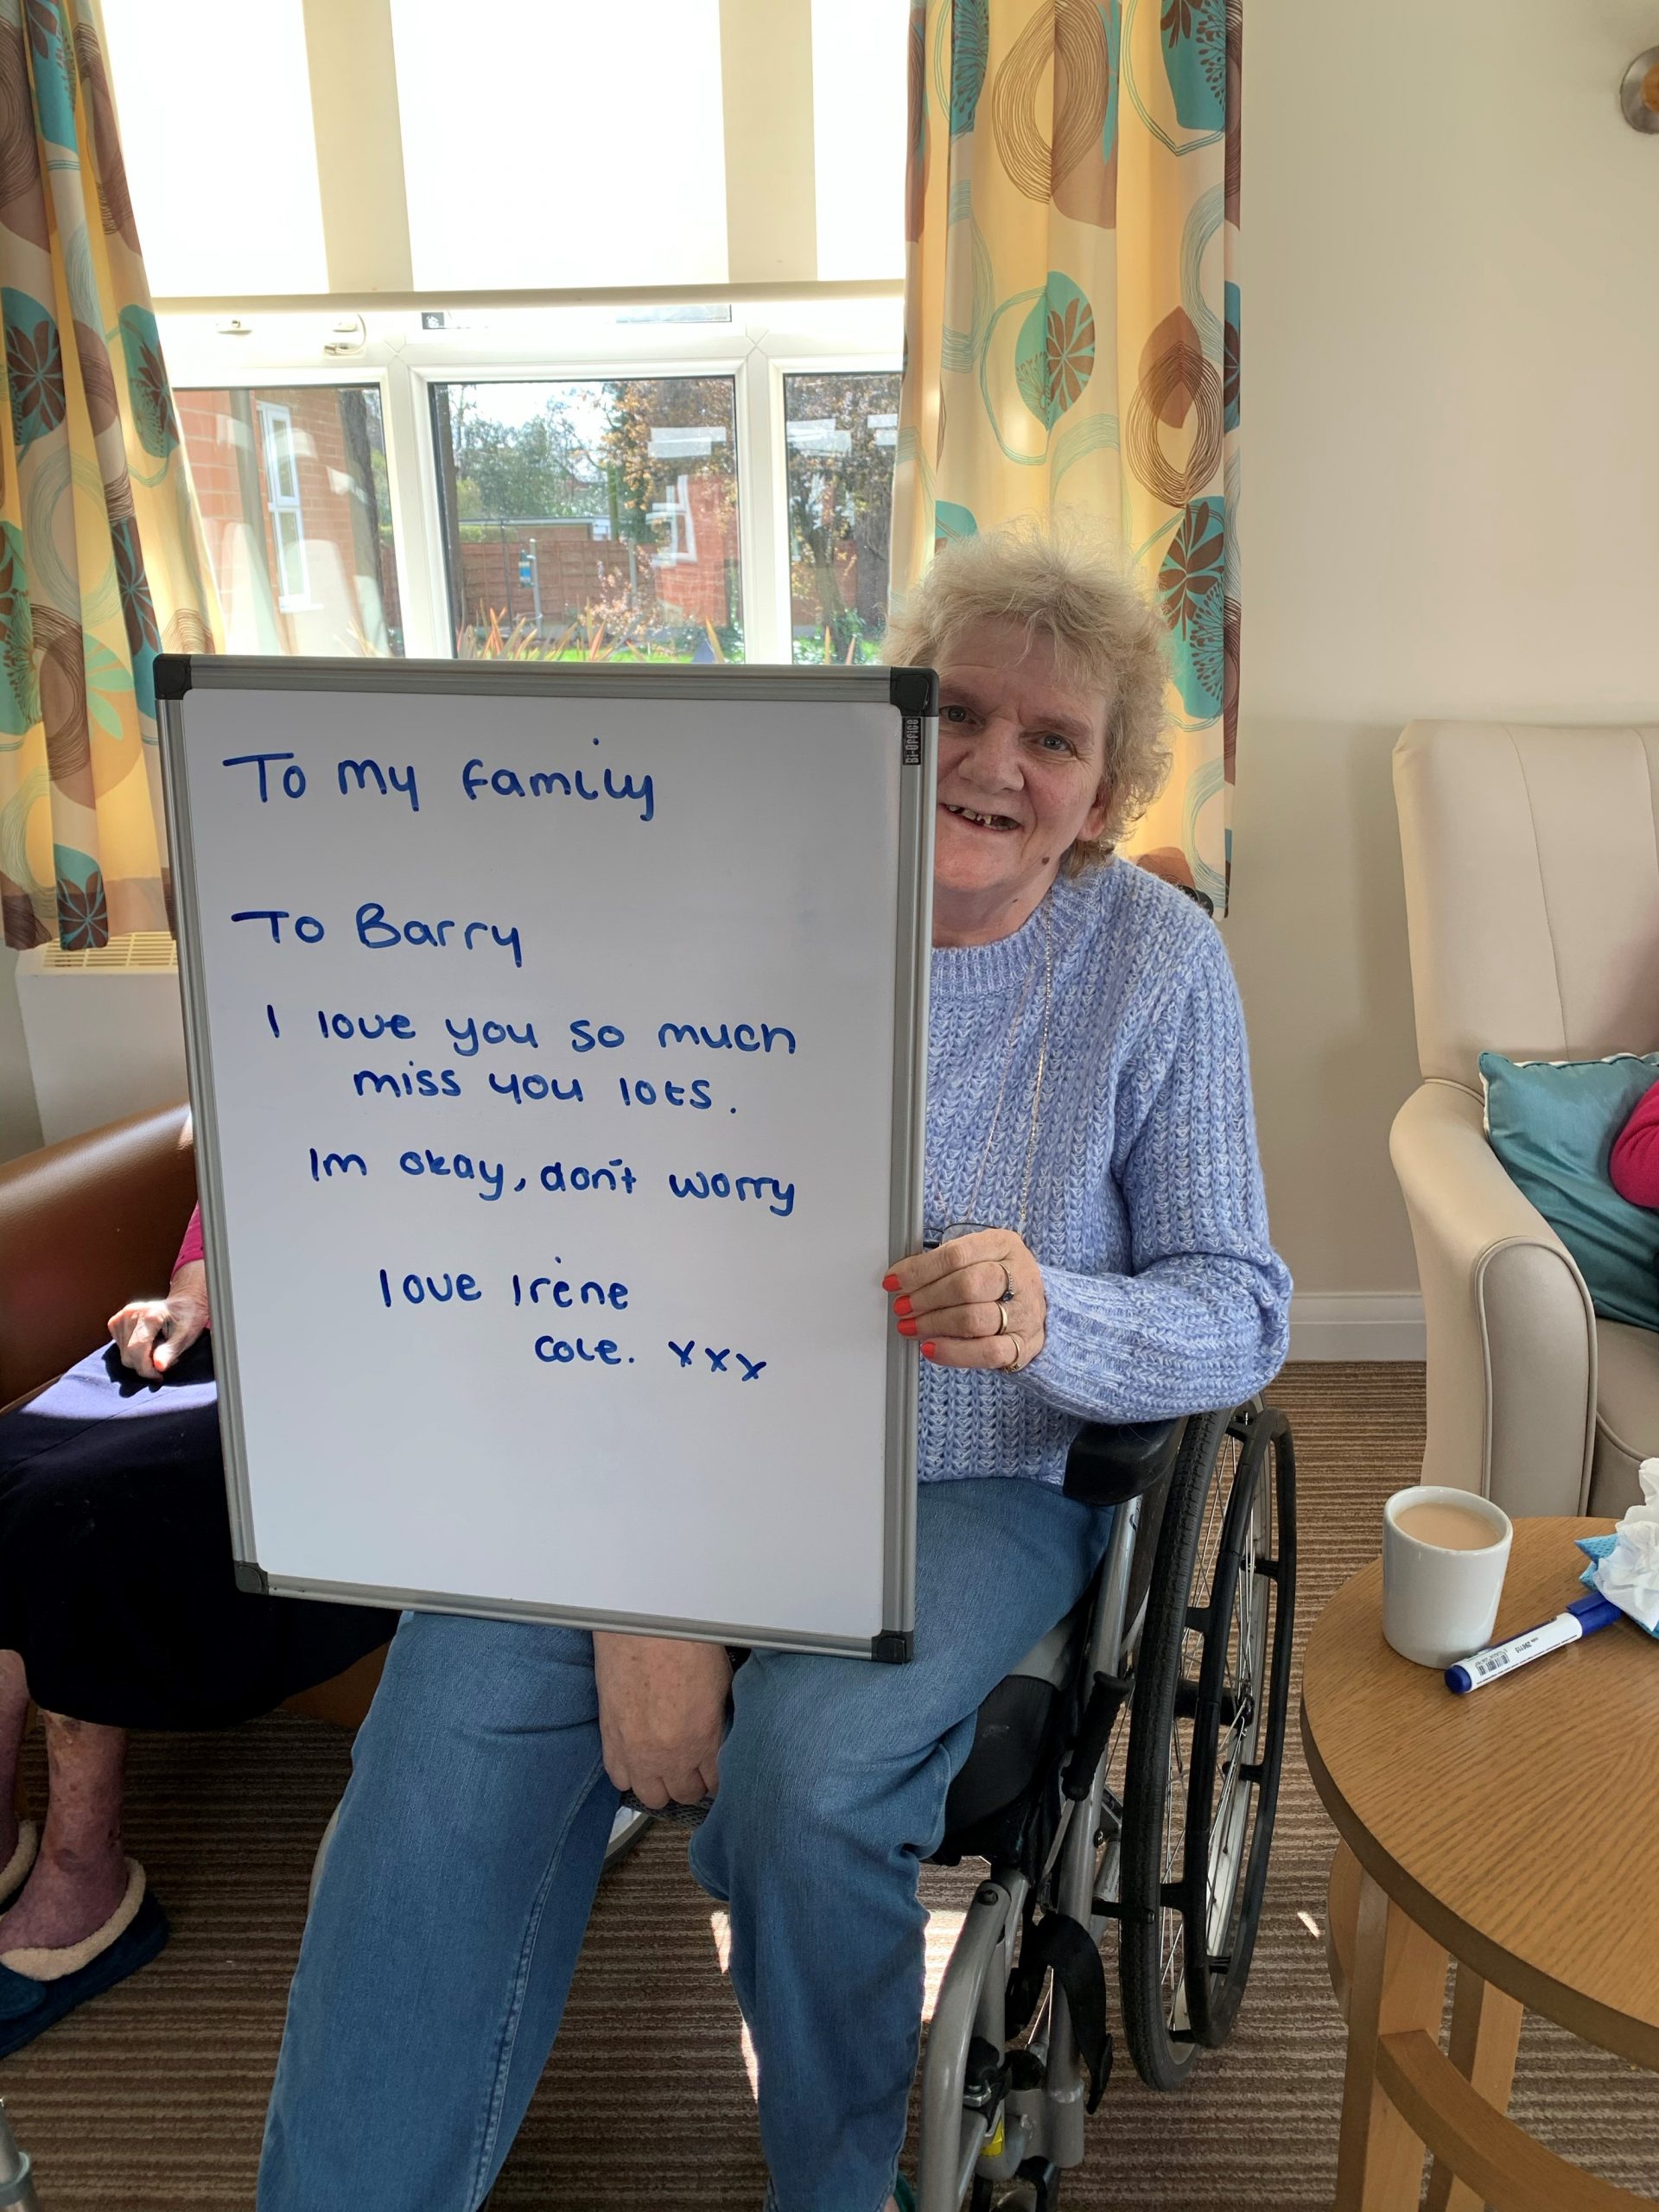 To my family
To Barry
I love you so much
miss you lots.
Im okay, don't worry
love Irene
Cole. xxx
Bi-OFFICE